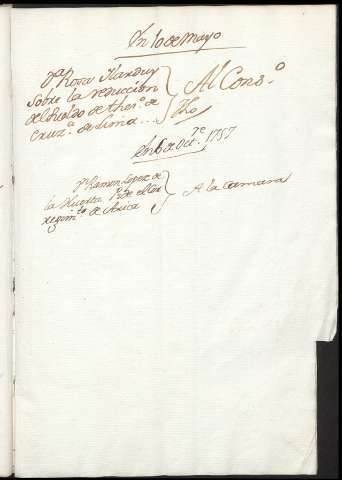 En 10 de Mayo
Dª Rosa Ilanduy
sobre la reduccion
del sueldo de thesº. de
Cruzª. de Lima...
Al Consº
Dho
En 6 de Octre. 1757
Dn Ramon Lopez de
la Huerta
regimto de Arica
A la Camara